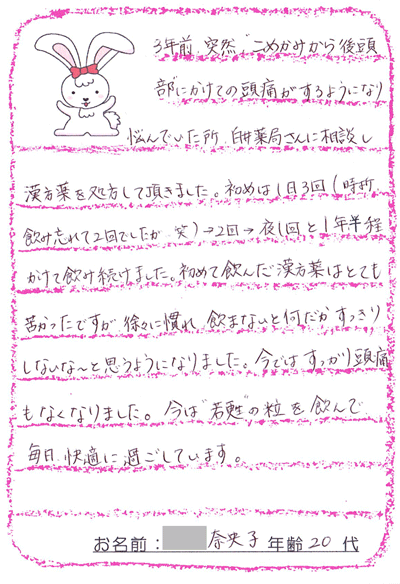 3年前、突然、こめかみから後頭
部にかけての頭痛がするようになり
悩んでいた所、臼井薬局さんに相談し
漢方薬を処方して頂きました。初めは1日3回(時折
飲み忘れて2回でしたが 笑)→2回→夜1回と1年半程
かけて飲み続けました。初めて飲んだ漢方薬はとても
苦かったですが、徐々に慣れ、飲まないと何だかすっきり
しないな〜と思うようになりました。今ではすっかり頭痛
もなくなりました。今は"若甦"の粒を飲んで
毎日、快適に過ごしています。
お名前:奈央子 年齢20代